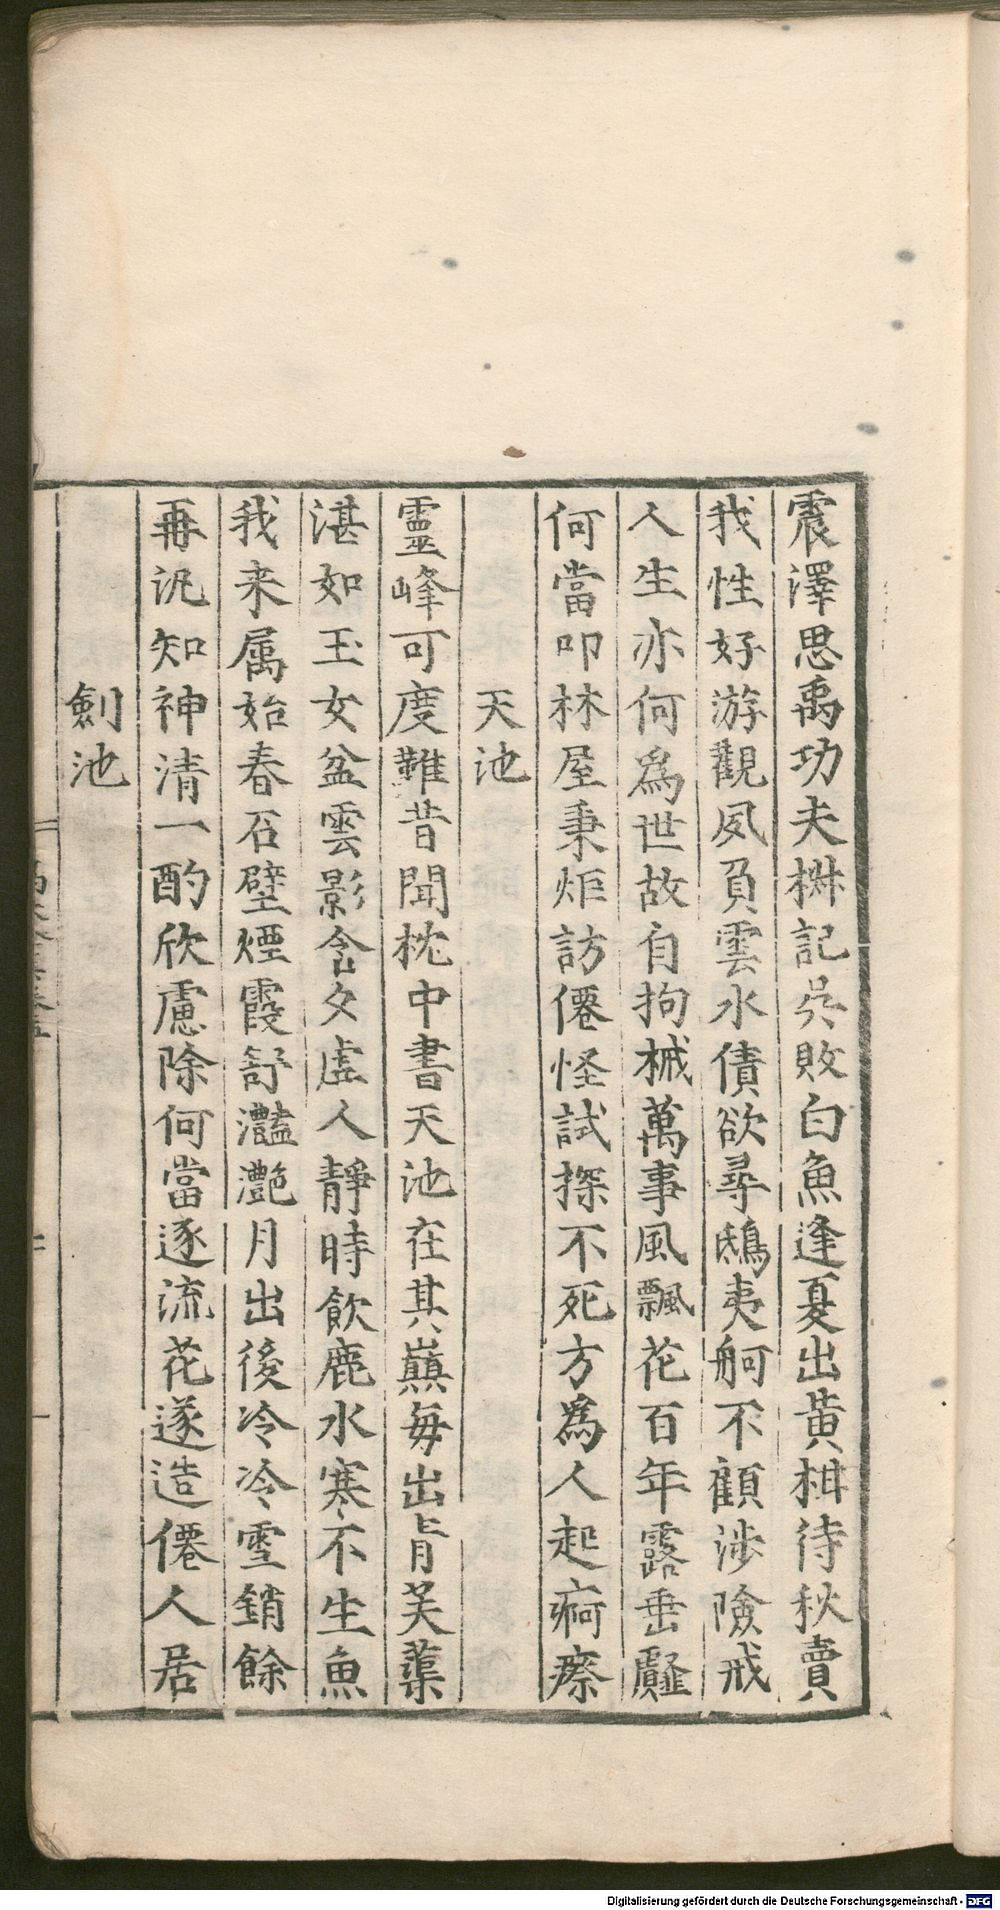 震澤思禹功夫椒記吳敗白魚逢夏出黃柑待秋賣
我性好游觀夙負雲水債欲尋鴟夷舸不顧涉險戒
人生亦何為世故自拘械萬事風飄花百年露垂薤
何當叩林屋秉炬訪僊怪試探不死方為人起痾瘵
天池
靈峰可度難昔聞枕中書天池在其巔每出青芙蕖
湛如玉女盆雲影含夕虛人靜時飲鹿水寒不生魚
我来属始春石壁煙霞舒灩灩月出後冷冷雪銷餘
再汎知神清一酌欣慮除何當逐流花遂造僊人居
劍池
Digitalisierung gefördert durch die Deutsche Forschungsgemeinschaft - DFG